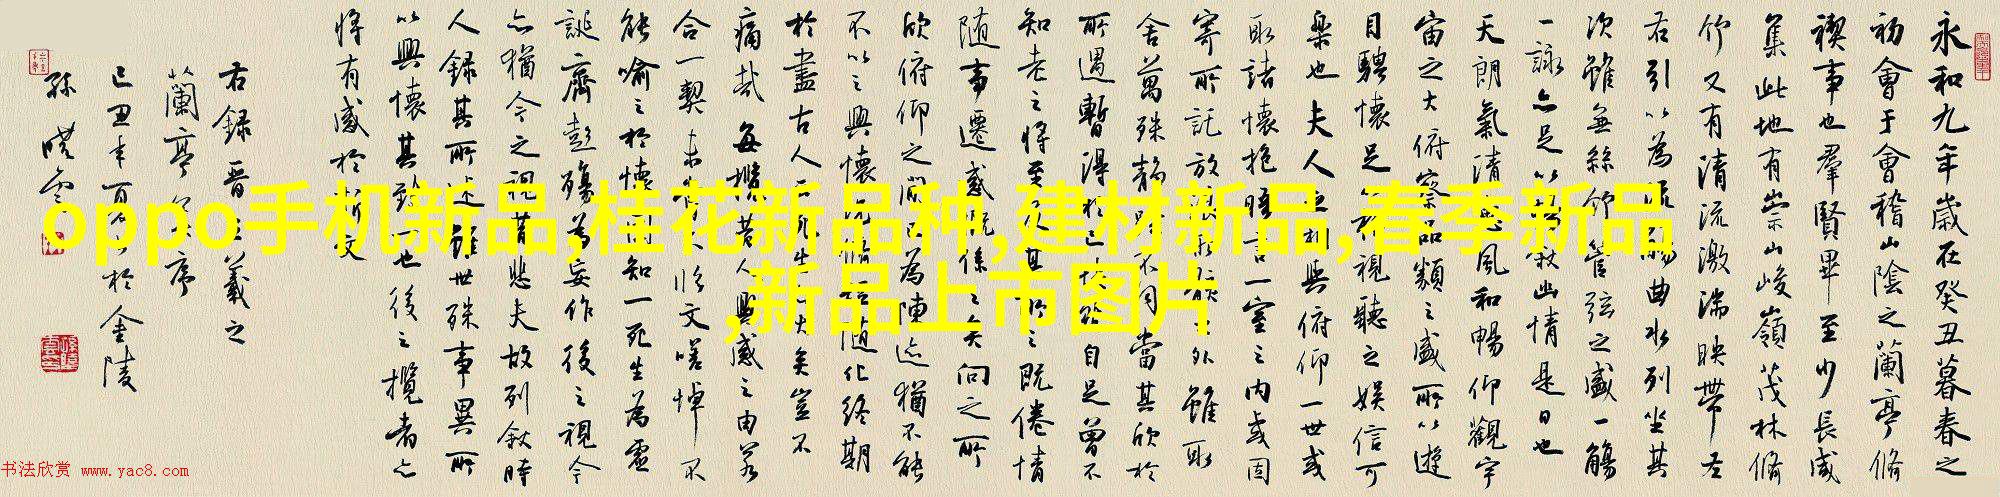 永和九年歲在癸丑暮春之
初會于會稽山陰之蘭亭脩
禊事也羣賢畢至少長咸
集此地有崇山峻嶺茂林脩
竹又有清流激湍映帶左
右引以為流觴曲水列坐其
次雖無絲竹管弦之盛一觴
一詠亦足以暢敘幽情是日也
天朗氣清惠風和暢仰觀宇
宙之大俯察品類之盛所以遊
目騁懷足以極視聽之娛信可
樂也夫人之相與俯仰一世或
取諸懷抱晤言一室之內或因
寄所託放浪形骸之外雖取
舍萬殊靜躁不同當其欣於
所遇暫得於己快然自足曾不
知老之將至及其所之既倦情
隨事遷感慨係之矣向之所
欣俯仰之間已為陳迹猶不能
不以之興懷況脩短隨化終期
於盡古人云死生亦大矣豈不
痛哉每攬昔人興感之由若
合一契未嘗不臨文嗟悼不
能喻之於懷固知一死生為虛
誕齊彭殤為妄作後之視今
亦猶今之視昔悲夫故列敘時
人錄其所述雖世殊事異所
以興懷其致一也後之攬者亦
將有感於斯文
右錄晉王羲之
蘭亭集序
己丑年夏於金陵
孫曉雲
oppo手机新品,桂花新品种,建材新品,春季新品
,新品上市图片
书法欣赏 www.yac8.com